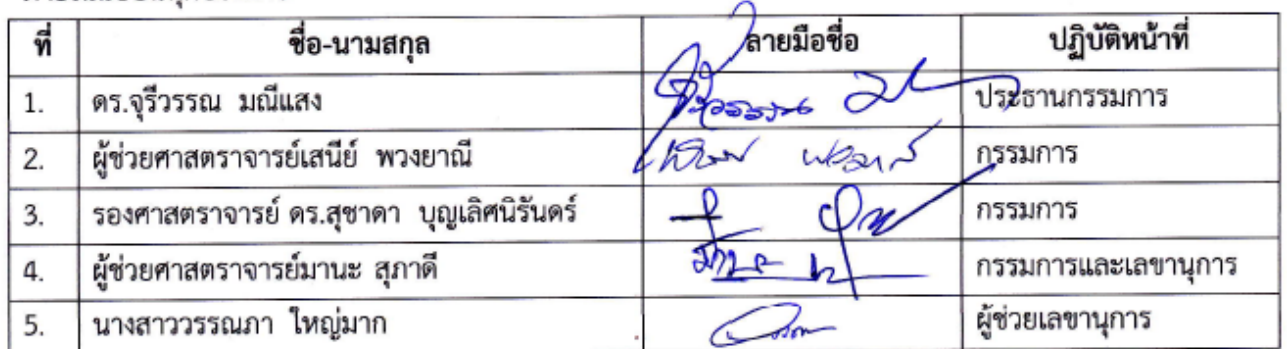 ที่ ชื่อ-นามสกุล ลายมือชื่อ ปฏิบัติหน้าที่
1. ดร.จุรีวรรณ มณีแสง ประธานกรรมการ
2. ผู้ช่วยศาสตราจารย์เสนีย์ พวงยาณี กรรมการ
3. รองศาสตราจารย์ ดร.สุชาดา บุญเลิศนิรันดร์ กรรมการ
4. ผู้ช่วยศาสตราจารย์มานะ สุภาดี กรรมการและเลขานุการ
5. นางสาววรรณภา ใหญ่มาก ผู้ช่วยเลขานุการ